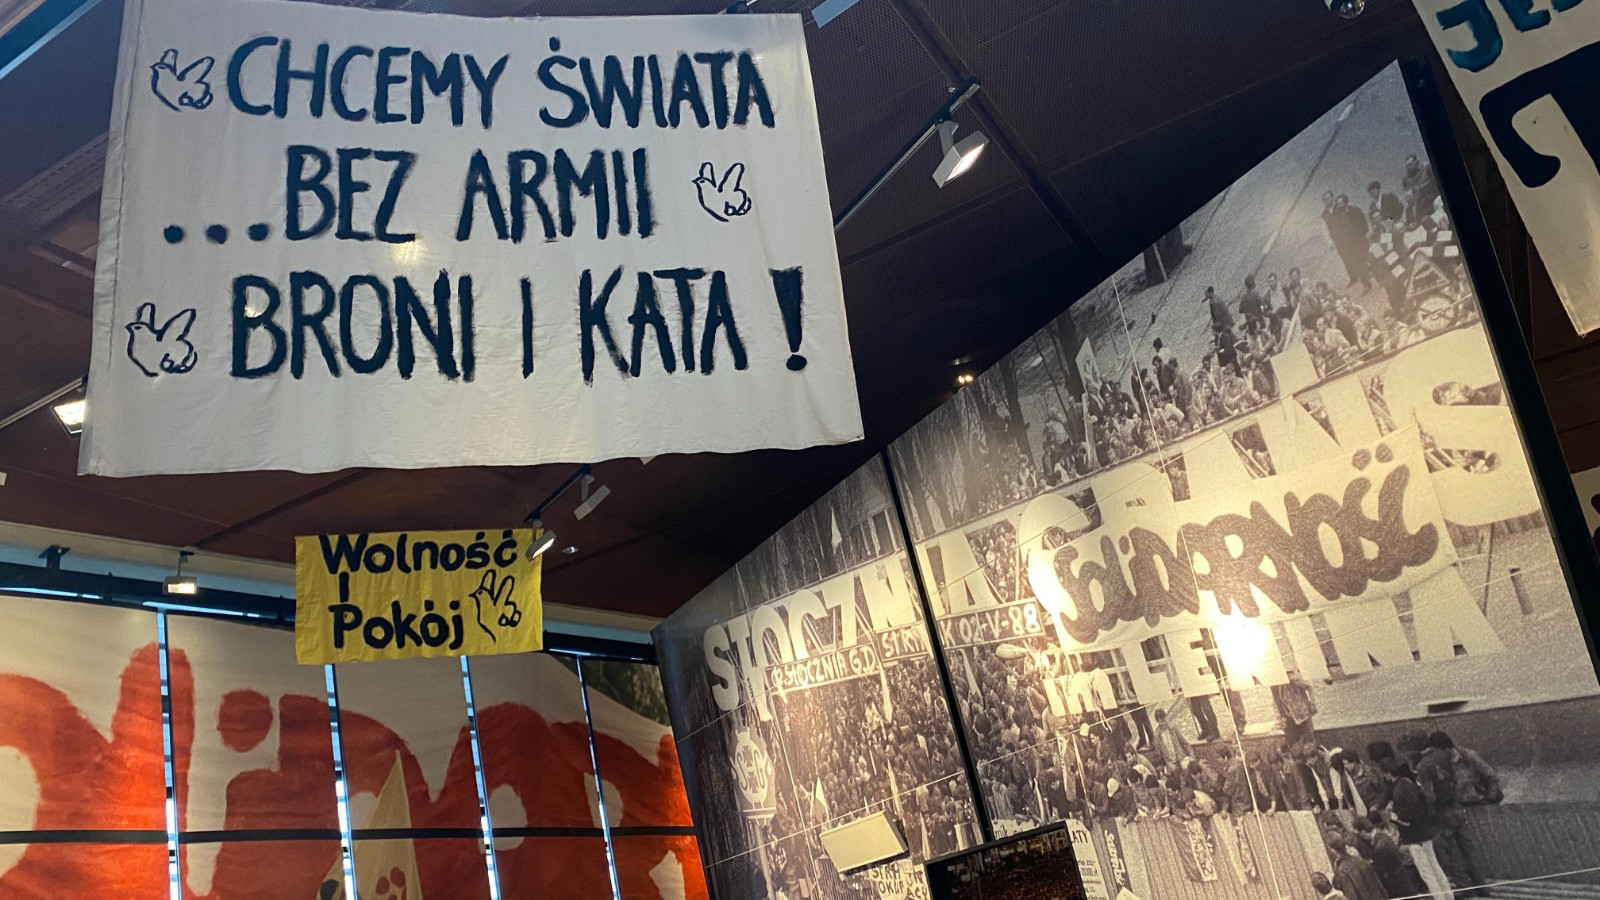 CHCEMY ŚWIATA
...BEZ ARMII
BRONI I KATA!
Wolność
i
Pokój
STOCZNIA GDAŃSK
STOCZNIA GD.
STRAJK 02-V-88
SOLiDARNOŚĆ
im LENINA